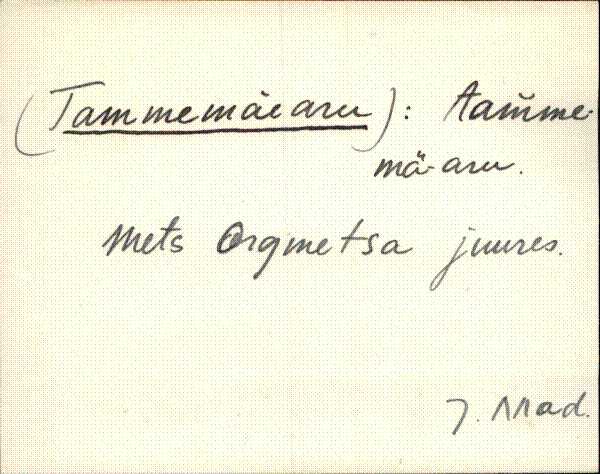 (Tammemäearu): tam̆me-
mä-aru.
Mets Orgmetsa juures.
J. Mad.